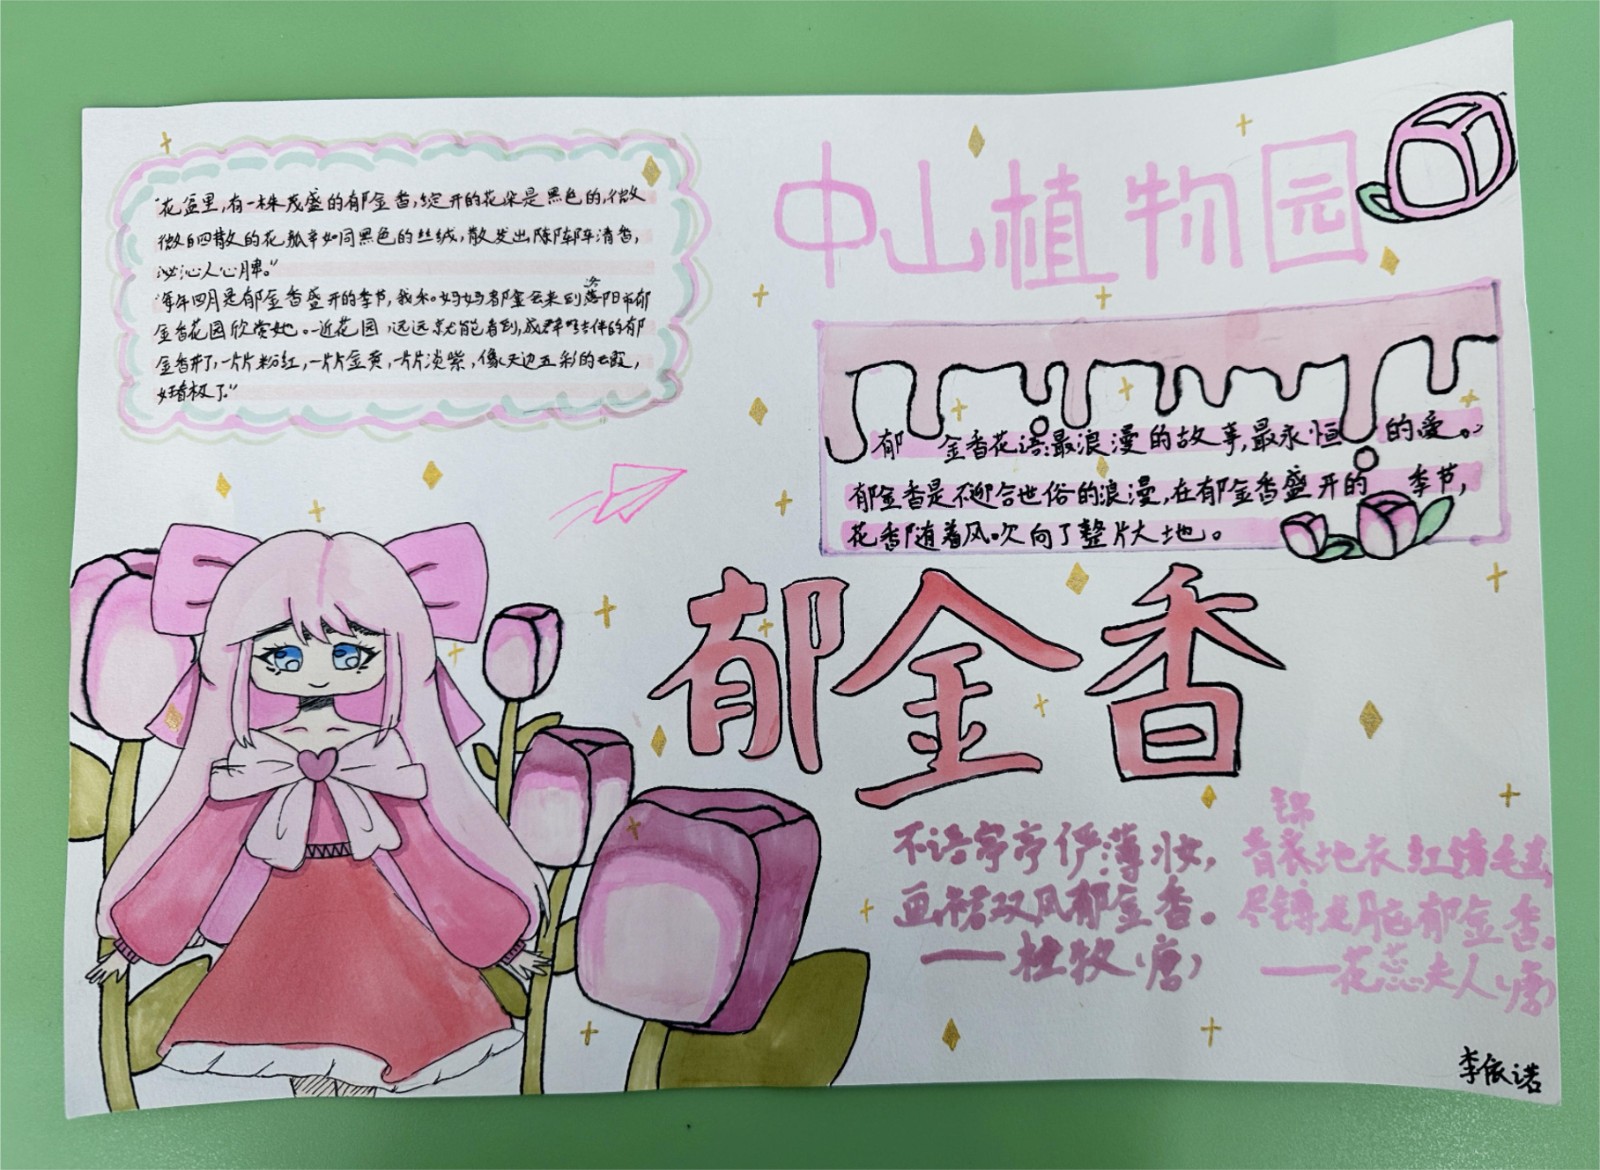 中山植物园
"花盆里,有一株茂盛的郁金香,绽开的花朵是黑色的,微
微向四散的花瓣幸如同黑色的丝绒,散发出阵阵清香,
沁人心脾。"
每年四月是郁金香盛开的季节,我和妈妈都会来到洛阳市郁
金香花园欣赏她。一近花园,远远就能看到,成群结伴的郁
金香开了,一片片粉红,一片片金黄,一片片淡紫,像天边五彩的云霞,
好看极了。"
郁金香花语:最浪漫的故事,最永恒的爱。
郁金香是不迎合世俗的浪漫,在郁金香盛开的季节,
花香随着风吹向了整片大地。
郁金香
不语亭亭俨薄妆,
画裙双凤郁金香。
——杜牧(唐)
青 地衣红绣毛
尽铺龙脑郁金香。
——花蕊夫人(唐)
李依诺